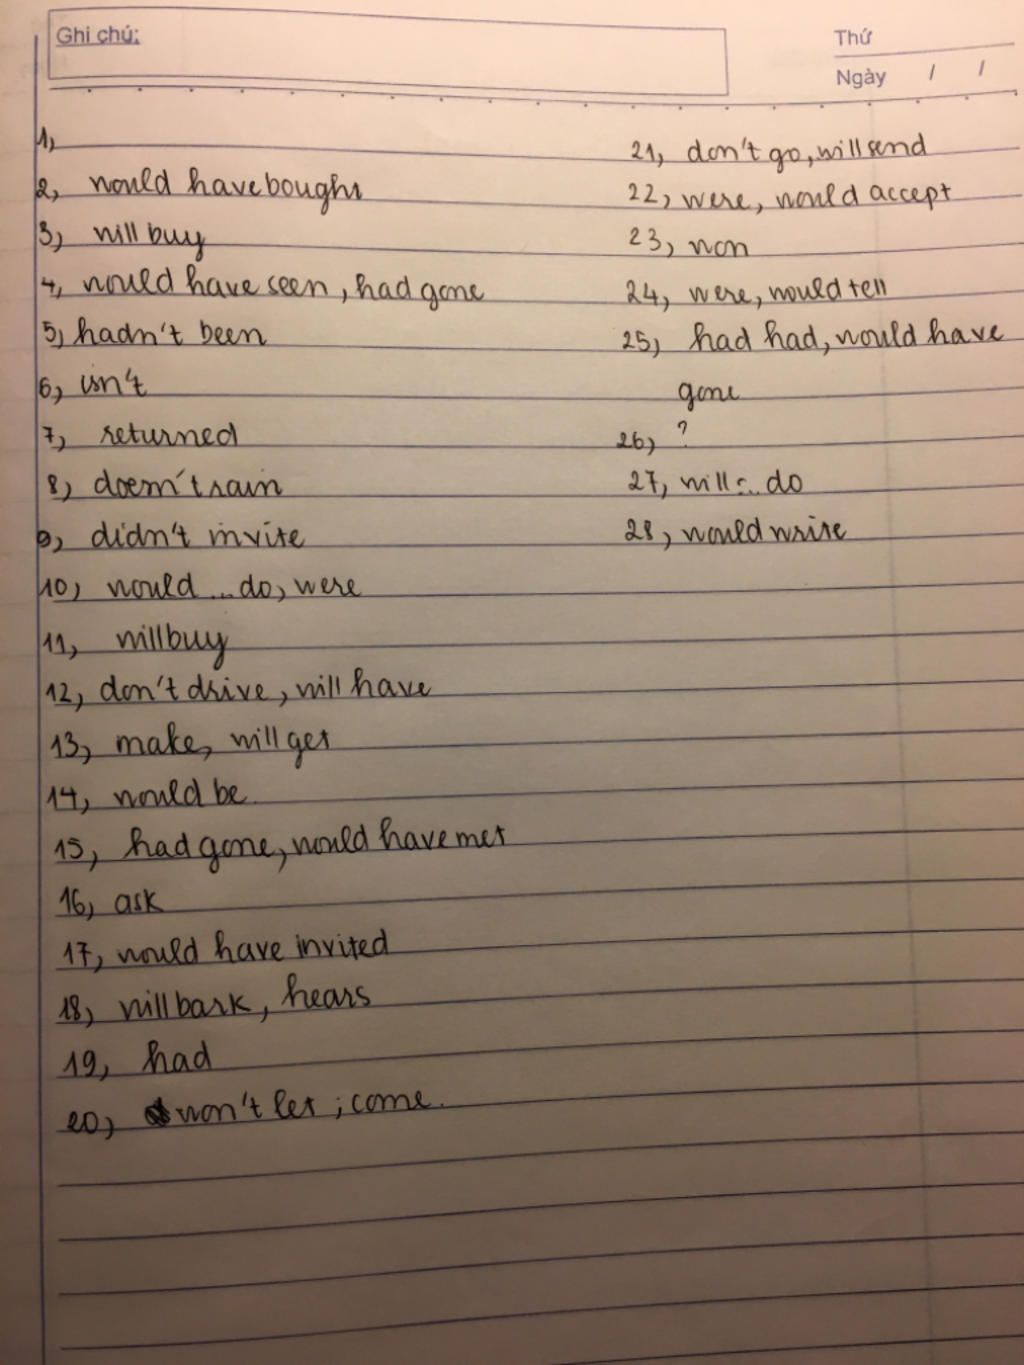 Ghi chú:
Thứ
Ngày / /
1,
2, would have bought
3, will buy
4, would have seen, had gone
5, hadn't been
6, isn't
7, returned
8, doesn't rain
9, didn't invite
10, would ... do, were
11, will buy
12, don't drive, will have
13, make, will get
14, would be
15, had gone, would have met
16, ask
17, would have invited
18, will bark, hears
19, had
20, won't let ; come.
21, don't go, will send
22, were, would accept
23, won
24, were, would tell
25, had had, would have
gone
26, ?
27, will ... do
28, would write